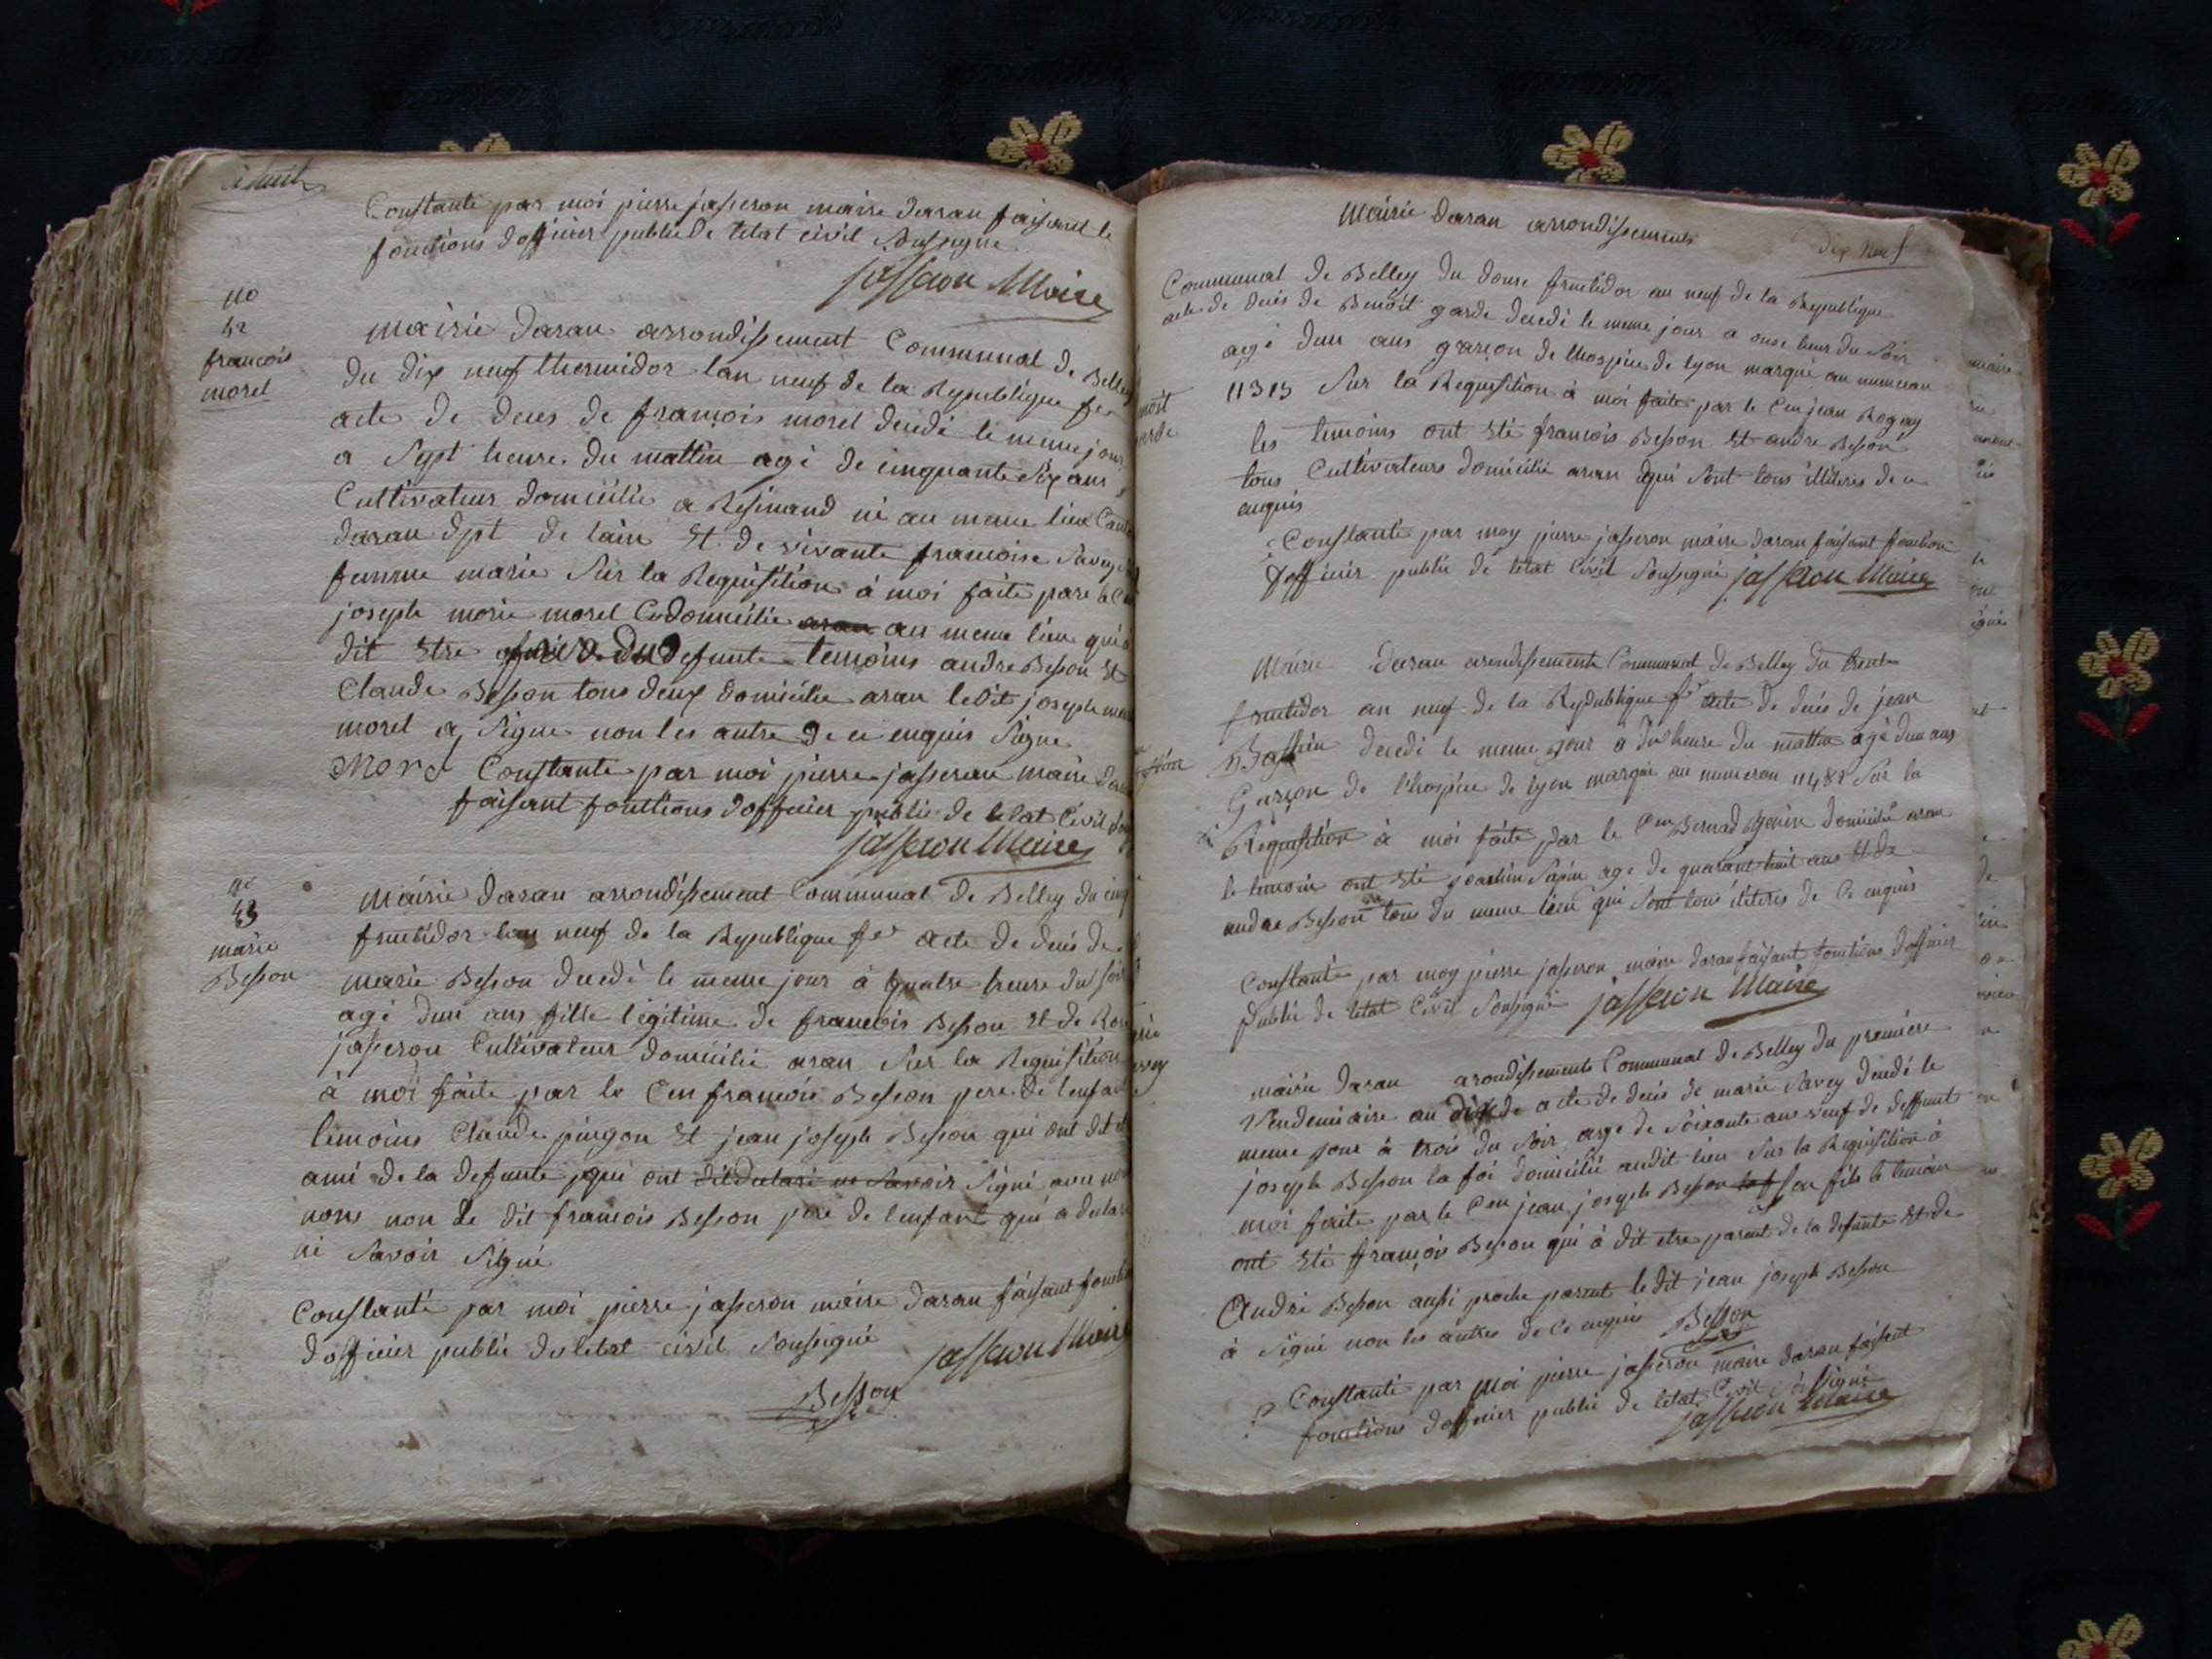 Constanté par moi pierre jasseron maire daran faisant le
fonctions dofficier public de letat civil soussigne
jasseron Maire
no
42
francois
morel
mairie daran arrondissement Communal de Belley
du dix neuf thermidor lan neuf de la Republique fse
acte de deces de francois morel decedé le meme jour
a sept heure du mattin agé de cinquante six ans
Cultivateur domicilié a Resinand né au meme lieu
daran dpt de lain Et de vivante francoise
femme marie sur la Requisition à moi faite pare le
joseph marie morel domicilié aran au meme lieu qui
dit Etre du defunte temoins andre Besson Et
Claude Besson tous deux domicilie aran ledit joseph
morel a signe non les autre de ce enquis signe
Morel Constante par moi pierre jasseron maire
faisant fonctions dofficier public de letat civil
jasseron Maire
no
43
marie
Besson
mairie daran arrondissement Communal de Belley du cinq
fructidor lan neuf de la Republique fse acte de deces de
marie Besson decedé le meme jour à quatre heure du soir
agé dun ans fille légitime de francois Besson Et de
jasseron Cultivateur domicilié aran sur la Requisition
à moi faite par le Cen francois Besson pere de lenfant
temoins Claude pingon Et jean joseph Besson qui ont dit
ami de la defunte qui ont dit declaré ne savoir signé avec
nous non le dit francois Besson pere de lenfant qui a declaré
ni savoir signé
Constanté par moi pierre jasseron maire daran faisant
dofficier public de letat civil soussigné
jasseron Maire
Besson
mairie daran arrondissements
dix neuf
Communal de Belley du douse fructidor an neuf de la Republique
acte de deces de Benoit garde decedé le meme jour a onse heur du soir
agé dun ans garçon de lhospice de lyon marqué au numeron
11313 sur la Requisition à moi faite par le Cen jean Rognay
les temoins ont Eté francois Besson Et andre Besson
tous Cultivateurs domicilié aran qui sont tous illiteres de ce
enquis
Constanté par moy pierre jasseron maire daran faisant fonction
dofficier public de letat civil soussigné jasseron Maire
Mairie daran arondissements Communal de Belley du trente
fructidor an neuf de la Republique fse acte de deces de jean
decedé le meme jour a dix heure du mattin agé dun ans
Garçon de lhospice de lyon marqué au numeron 11482 sur la
Requisition à moi faite par le Cen Bernad domicilié aran
le temoin ont Eté joachin sapin age de quarant huit ans Et de
andre Besson tous du meme lieu qui sont tous iliteres de Ce enquis
Constanté par moy pierre jasseron maire daran faisant fonctions dofficier
public de letat Civil soussigné jasseron Maire
mairie daran arondissements Communal de Belley du premiere
Vendemiaire an dix de acte de deces de marie savey decedé le
meme jour à trois du soir age de soixante ans veuf de deffunt
joseph Besson la foi domicilié audit lieu sur la Requisition à
moi faite par le Cen jean joseph Besson son fils le temoin
ont Eté françois Besson qui à dit etre parent de la defunte Et de
André Besson aussi proche parent le dit jean joseph Besson
à signé non les autres de Ce enquis Besson
Constanté par moi pierre jasseron maire daran faisant
fonctions dofficier public de letat Civil
jasseron Maire